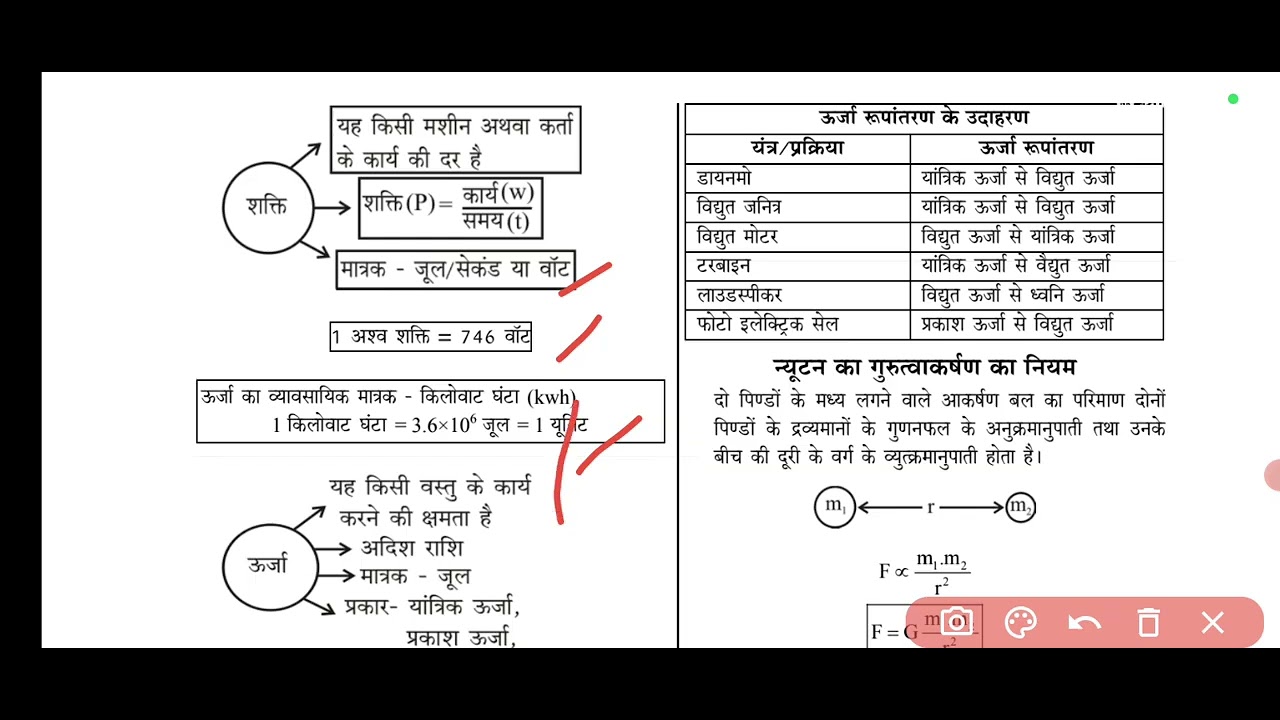 यह किसी मशीन अथवा कर्ता
के कार्य की दर है
शक्ति
शक्ति (P) = कार्य (w)
समय (t)
मात्रक - जूल/सेकंड या वॉट
1 अश्व शक्ति = 746 वॉट
ऊर्जा का व्यावसायिक मात्रक - किलोवाट घंटा (kwh)
1 किलोवाट घंटा = 3.6×10⁶ जूल = 1 यूनिट
यह किसी वस्तु के कार्य
करने की क्षमता है
ऊर्जा
अदिश राशि
मात्रक - जूल
प्रकार- यांत्रिक ऊर्जा,
प्रकाश ऊर्जा,
ऊर्जा रूपांतरण के उदाहरण
यंत्र/प्रक्रिया ऊर्जा रूपांतरण
डायनमो यांत्रिक ऊर्जा से विद्युत ऊर्जा
विद्युत जनित्र यांत्रिक ऊर्जा से विद्युत ऊर्जा
विद्युत मोटर विद्युत ऊर्जा से यांत्रिक ऊर्जा
टरबाइन यांत्रिक ऊर्जा से वैद्युत ऊर्जा
लाउडस्पीकर विद्युत ऊर्जा से ध्वनि ऊर्जा
फोटो इलेक्ट्रिक सेल प्रकाश ऊर्जा से विद्युत ऊर्जा
न्यूटन का गुरुत्वाकर्षण का नियम
दो पिण्डों के मध्य लगने वाले आकर्षण बल का परिमाण दोनों
पिण्डों के द्रव्यमानों के गुणनफल के अनुक्रमानुपाती तथा उनके
बीच की दूरी के वर्ग के व्युत्क्रमानुपाती होता है।
m₁ r m₂
F ∝ m₁.m₂
r²
F = G
r²